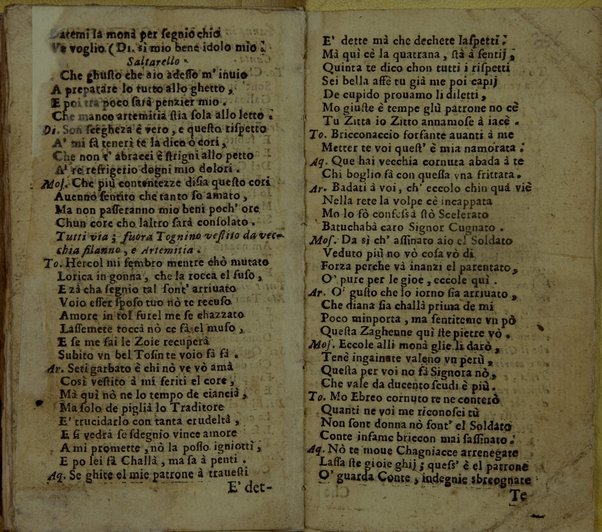 Datemi la monà per segnio chio
Ve voglio (Di. sì mio bene idolo mio.
Saltarello
Che ghusto che aio adesso m'inuio
A preparare lo tutto allo ghetto,
E poi tra poco sarà penzier mio.
Che manco artemitia stia sola allo letto:
Di. Son seegheza è vero, e questo rispetto
A' mi fà teneri te la dico ò cori,
Che non t' abracci è strigni allo petto
A' re refrigerio dogni mio dolori.
Mos. Che più contentezze disia questo cori
Auenno sentito che tanto so amato,
Ma non passeranno mio beni poch' ore
Chun core cho laltro sarà consolato.
Tutti via; fuora Tognino vestito da vec-
chia filanno, e Artemitia.
To. Hercol mi sembro mentre chò mutato
Lorica in gonna, che la rocca el fuso,
E zà cha segnio tal sont' arriuato
Voio esser sposo tuo nò te recuso
Amore in tol furel me se ehazzato
Lassemete toccà nò ce fà el muso,
E se me fai le Zoie recuperà
Subito vn bel Tosin te voio fà fà.
Ar. Seti garbato è chi nò ve vò amà
Così vestito à mi feriti el core,
Mà quì nò ne lo tempo de ciancià
Ma solo de piglià lo Traditore
E' trucidarlo con tanta crudeltà,
E si vedrà se sdegnio vince amore
A mi promette, nò la posso igniotti,
E po lei fà Challà, ma sa à penti.
Aq. Se ghite el mie patrone à trauesti
E' det-
E' dette mà che dechete laspetti:
Mà quì cè la quatrana, stà à sentij,
Quinta te dico chon tutti i rispetti
Sei bella affè tu già me poi capij
De cupido prouamo li diletti,
Mo giuste è tempe glù patrone no cè
Tu Zitta io Zitto annamose à iacè.
To. Bricconaccio forfante auanti à me
Metter te voi quest' è mia namorata:
Aq. Que hai vechia cornuta abada à te
Chi boglio fà con quessa vna frittata.
Ar. Badati à voi, ch' eccolo chin quà viè
Nella rete la volpe cè incappata
Mo lo fò confessà stò Scelerato
Batuchabà caro Signor Cugnato.
Mos. Da sì ch' assinato aio el Soldato
Veduto più no vò cosa vò di.
Forza perche và inanzi el parentato,
O' pure per le gioe, eccole qui.
Ar. O' gusto che lo iorno sia arriuato,
Che diana sia challà prima de mi
Poco minporta, ma sentitemo vn pò
Questa Zaghenne quì ste pietre vò.
Mos. Eccole alli monà glie li darò,
Tenè ingainate valeno vn perù,
Questa per voi no fà Signora nò,
Che vale da ducento scudi è più.
To. Mo Ebreo cornuto re ne conterò
Quanti ne voi me riconosci tù
Non sont donna nò sont' el Soldato
Conte infame briccon mai sassinato.
Aq. Nò te moue Chagniacce arrenegate
Lassa ste gioie ghij; quess' è el patrone
O' guarda Conte, indegnie sbreognate
Te